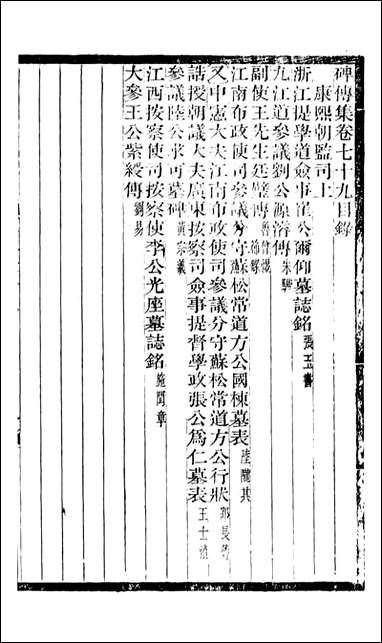 碑傳集卷七十九目錄
康熙朝監司上
浙江提學道僉事崔公爾仰墓誌銘 張玉書
九江道參議劉公源濬傳 朱駿
副使王先生廷璧傳 魯曾煜 節錄
江南布政使司參議分守蘇松常道方公國棟墓表 陸隴其
又中憲大夫江南布政使司參議分守蘇松常道方公行狀 邵長蘅
誥授朝議大夫廣東按察司僉事提督學政張公爲仁墓表 王士禛
參議陸公求可墓碑 黃宗羲
江西按察使司按察使李公光座墓誌銘 施閏章
大參王公紫綬傳 劉易